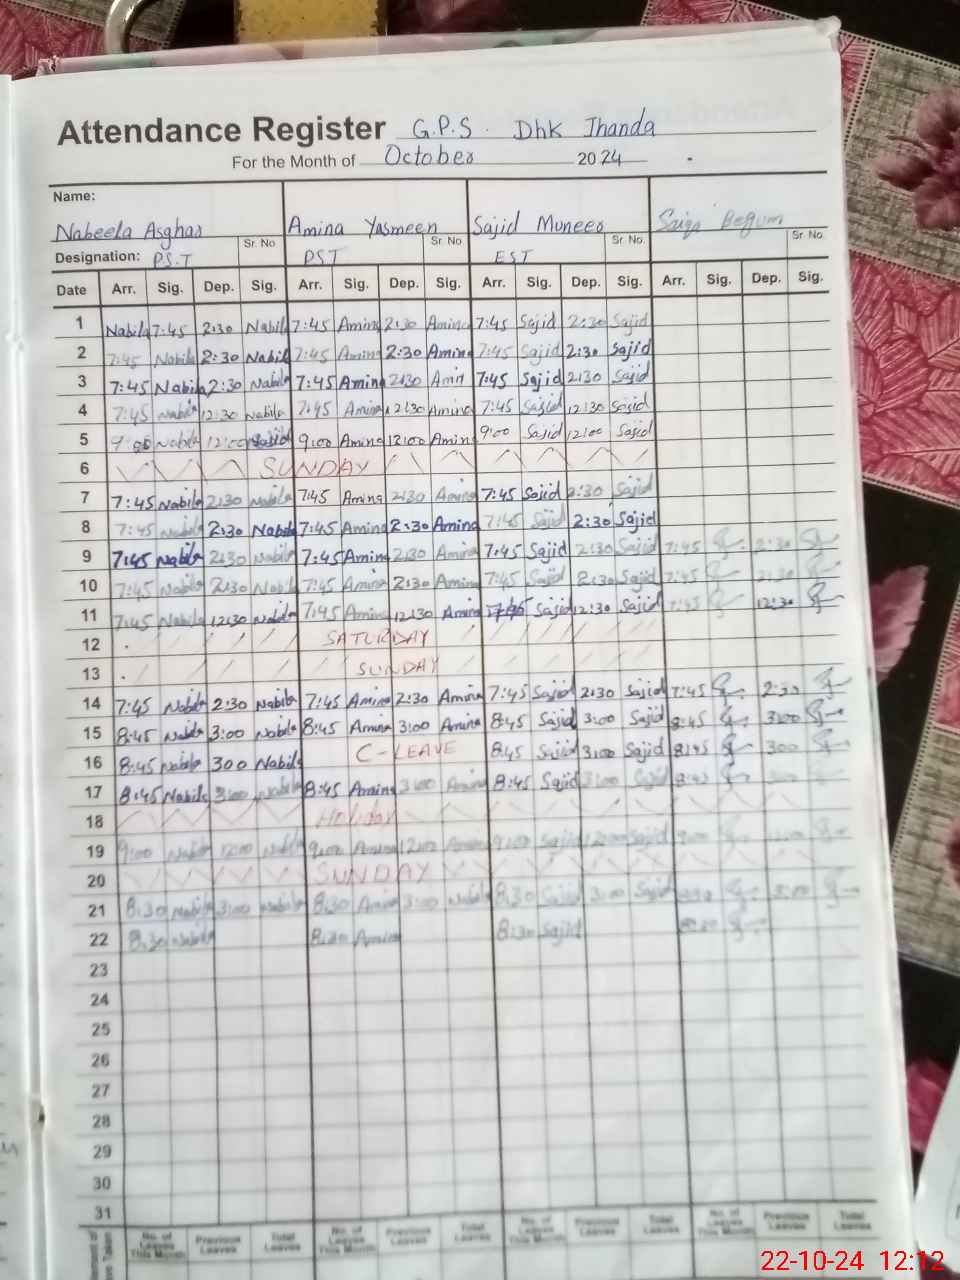 Attendance Register G.P.S. Dhk Jhanda
For the Month of October 2024
Name:
Nabeela Asghar Amina Yasmeen Sajid Muneer Begum
Sr. No Sr. No Sr. No. Sr. No.
Designation: P.S.T PST EST
Date Arr. Sig. Dep. Sig. Arr. Sig. Dep. Sig. Arr. Sig. Dep. Sig. Arr. Sig. Dep. Sig.
1 Nabila 7:45 2:30 Nabila 7:45 Amina 2:30 Amina 7:45 Sajid 2:30 Sajid
2 7:45 Nabila 2:30 Nabila 7:45 Amina 2:30 Amina 7:45 Sajid 2:30 Sajid
3 7:45 Nabila 2:30 Nabila 7:45 Amina 2:30 Amin 7:45 Sajid 2:30 Sajid
4 7:45 Nabila 12:30 Nabila 7:45 Amina 12:30 Amina 7:45 Sajid 12:30 Sajid
5 9:00 Nabila 12:00 9:00 Amina 12:00 Amina 9:00 Sajid 12:00 Sajid
6 SUNDAY
7 7:45 Nabila 2:30 Nabila 7:45 Amina 2:30 Amina 7:45 Sajid 2:30 Sajid
8 7:45 Nabila 2:30 Nabila 7:45 Amina 2:30 Amina 7:45 Sajid 2:30 Sajid
9 7:45 Nabila 2:30 Nabila 7:45 Amina 2:30 Amina 7:45 Sajid 2:30 Sajid 7:45 2:30
10 7:45 Nabila 2:30 Nabila 7:45 Amina 2:30 Amina 7:45 Sajid 2:30 Sajid 7:45 2:30
11 7:45 Nabila 12:30 Nabila 7:45 Amina 12:30 Amina 7:45 Sajid 12:30 Sajid 7:45 12:30
12 SATURDAY
13 SUNDAY
14 7:45 Nabila 2:30 Nabila 7:45 Amina 2:30 Amina 7:45 Sajid 2:30 Sajid 7:45 2:30
15 8:45 Nabila 3:00 Nabila 8:45 Amina 3:00 Amina 8:45 Sajid 3:00 Sajid 8:45 3:00
16 8:45 Nabila 300 Nabila C-LEAVE 8:45 Sajid 3:00 Sajid 8:45 300
17 8:45 Nabila 3:00 Nabila 8:45 Amina 3:00 Amina 8:45 Sajid 3:00 Sajid 8:45
18 Holiday
19 9:00 Nabila 12:00 Nabila 9:00 Amina 12:00 Amina 9:00 Sajid 12:00 Sajid 9:00
20 SUNDAY
21 8:30 Nabila 3:00 Nabila 8:30 Amina 3:00 Nabila 8:30 Sajid 3:00 Sajid 8:30 3:00
22 8:30 Nabila 8:30 Amina 8:30 Sajid 8:30
23
24
25
26
27
28
29
30
31
No. of Leaves This Month Previous Leaves Total Leaves No. of Leaves This Month Previous Leaves Total Leaves No. of Leaves This Month Previous Leaves Total Leaves No. of Leaves This Month Previous Leaves Total Leaves
22-10-24 12:12